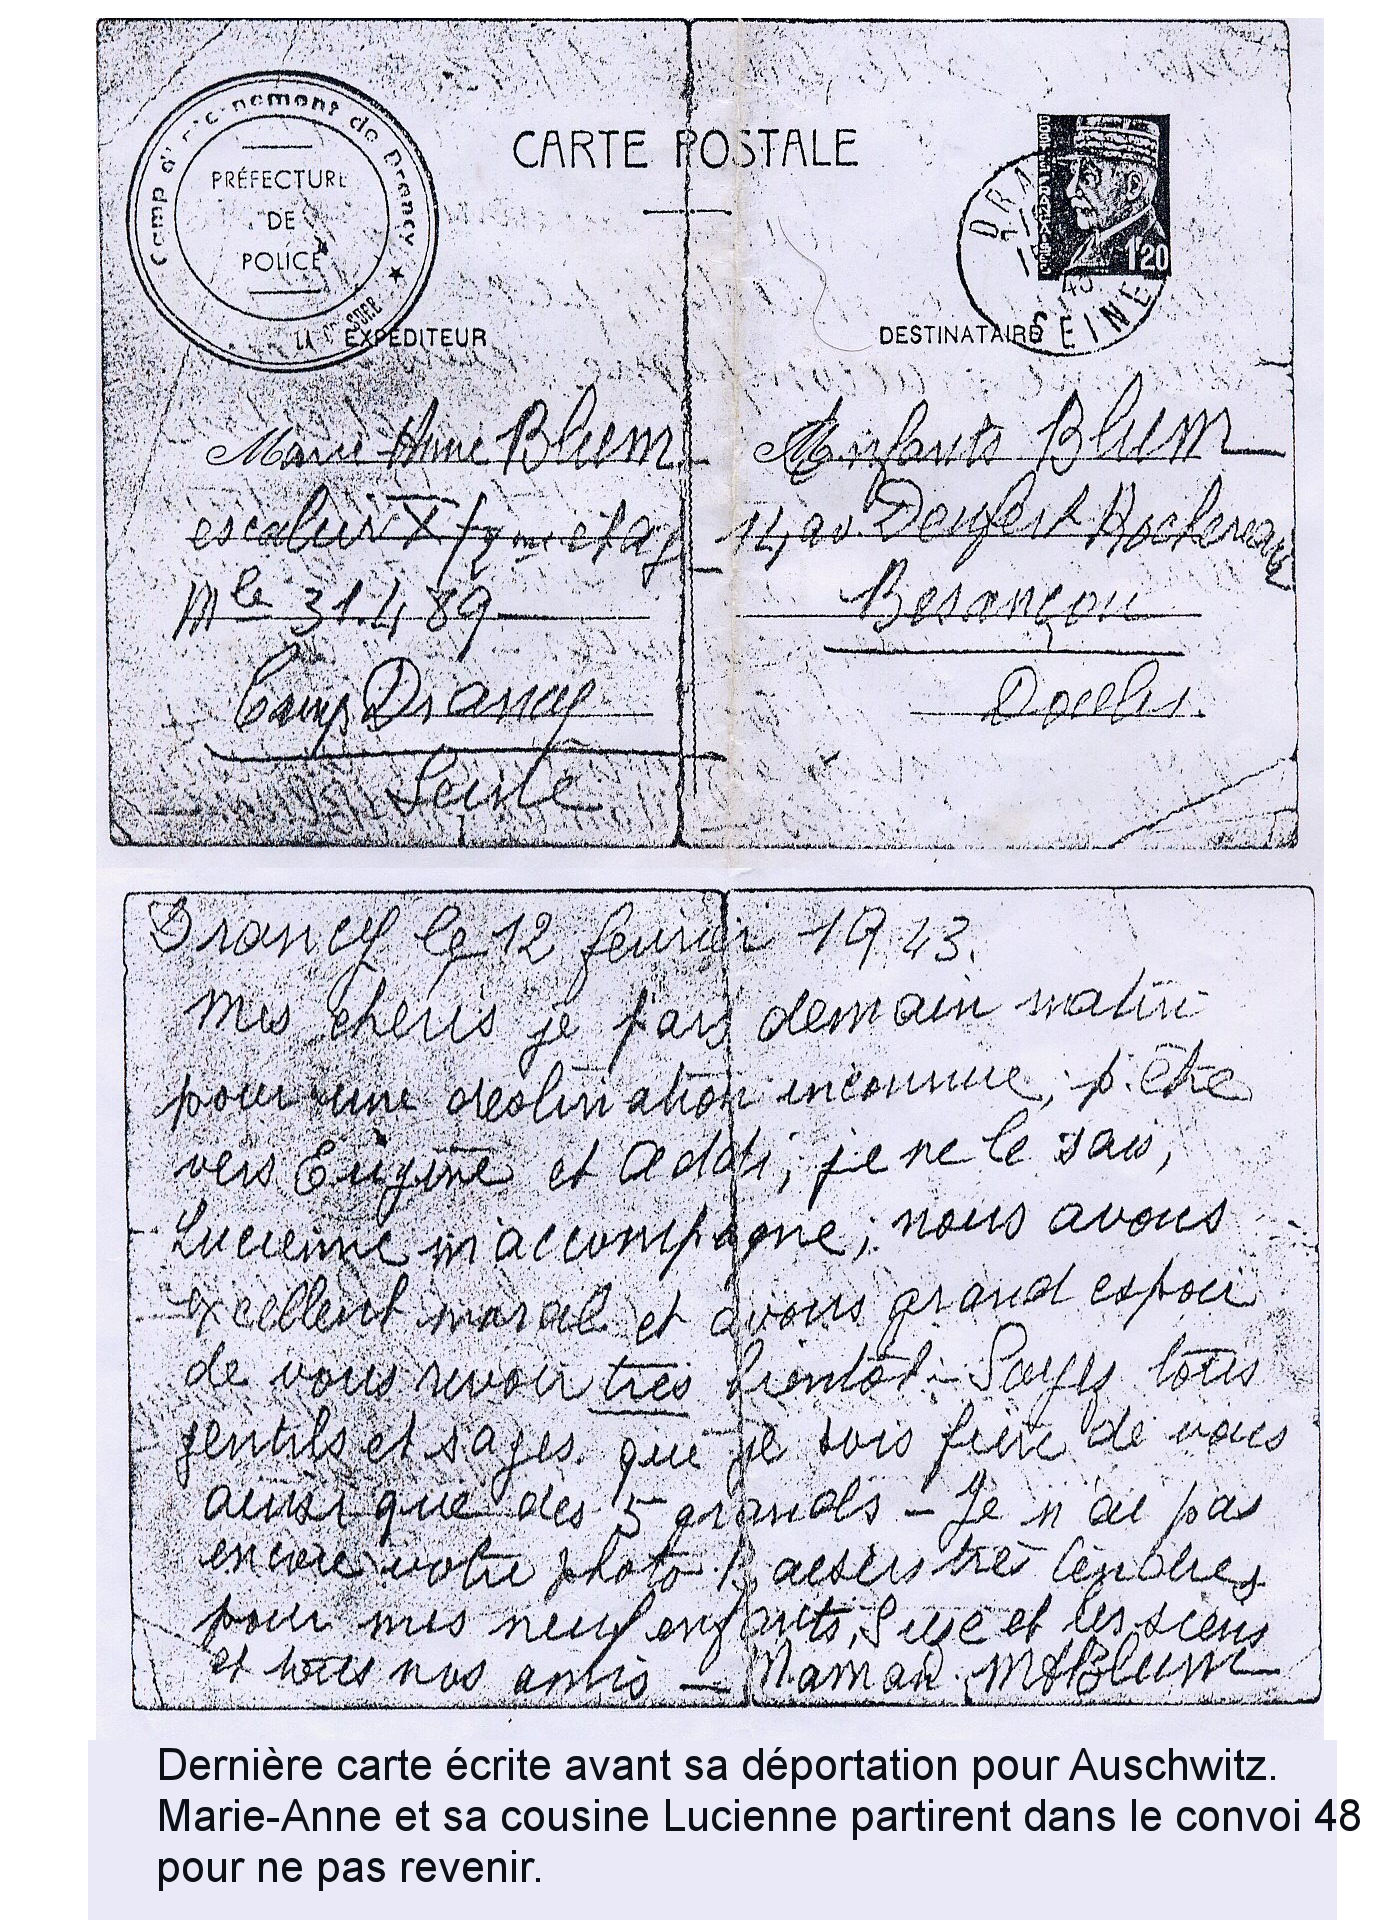 Camp d'internement de Drancy
PRÉFECTURE
DE
POLICE
LA CENSURE
CARTE POSTALE
DRA
43
SEINE
1F20
EXPÉDITEUR
DESTINATAIRE
Marie Anne Blum
escalier X 4ème étag
Mle 31.489
Camp Drancy
Seine
Enfants Blum
14, av. Denfert Rochereau
Besançon
Doubs.
Drancy le 12 fevrier 1943.
Mes cheris je pars demain matin
pour une destination inconnue, p. être
vers Eugène et Addi, je ne le sais,
Lucienne m'accompagne; nous avons
excellent moral et avons grand espoir
de vous revoir très bientôt. - Soyez tous
gentils et sages. que je sois fière de vous
ainsi que des 5 grands - Je n'ai pas
encore votre photo. Baisers très tendres
pour mes neuf enfants, Suze et les siens
et tous nos amis - Maman. MABlum
Dernière carte écrite avant sa déportation pour Auschwitz.
Marie-Anne et sa cousine Lucienne partirent dans le convoi 48
pour ne pas revenir.